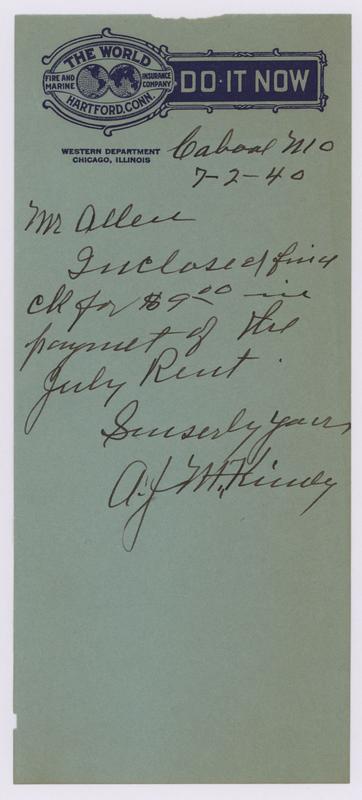 THE WORLD
FIRE AND MARINE INSURANCE COMPANY
HARTFORD, CONN.
DO·IT NOW
WESTERN DEPARTMENT
CHICAGO, ILLINOIS
Cabool MO
7-2-40
Mr Allen
Inclosed find
ck for $9.00 in
paymet of the
July Rent.
Sinserly yours
A.J. McKinney